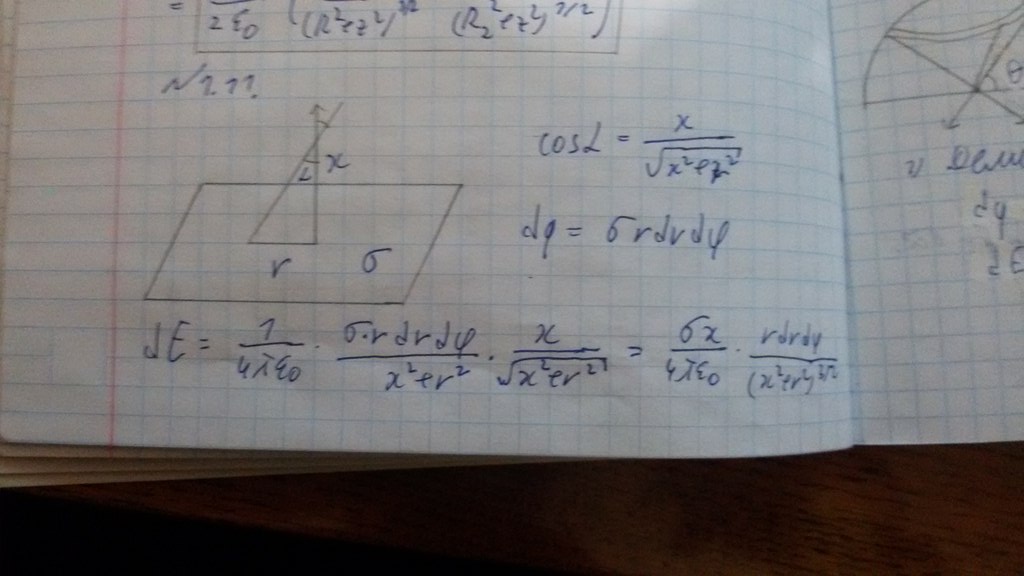 = / 2ε₀ ( / (R²+z²)^3/2 / (R₂²+z²)^3/2 )
N 1.11.
cosα = x / √(x²+r²)
x
α
dq = σ r dr dφ
r σ
dE = 1 / 4πε₀ · σ·r dr dφ / x²+r² · x / √(x²+r²) = σx / 4πε₀ · r dr dφ / (x²+r²)^3/2
θ
dq